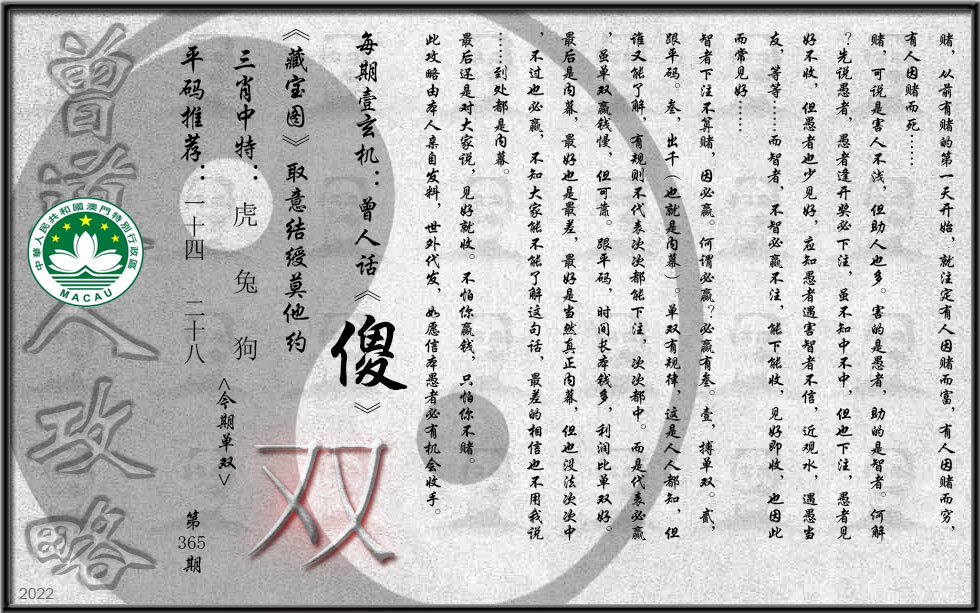 赌，从前有赌的第一天开始，就注定有人因赌而富，有人因赌而穷，
有人因赌而死……
赌，可说是害人不浅，但助人也多。害的是愚者，助的是智者。何解
？先说愚者，愚者逢开奖必下注，虽不知中不中，但也下注，愚者见
好不收，但愚者也少见好，应知愚者遇害智者不信，近观水，遇愚当
友，等等……而智者，不智必赢不注，能下能收，见好即收，也因此
而常见好……
智者下注不算赌，因必赢。何谓必赢？必赢有叁。壹，搏单双。贰，
跟平码。叁，出千（也就是内幕）。单双有规律，这是人人都知，但
谁又能了解，有规则不代表次次都能下注，次次都中。而是代表必赢
，虽单双赢钱慢，但可靠。跟平码，时间长本钱多，利润比单双好。
最后是内幕，最好也是最差，最好是当然真正内幕，但也没法次次中
，不过也必赢，不知大家能不能了解这句话，最差的相信也不用我说
……到处都是内幕。
最后还是对大家说，见好就收。不怕你赢钱，只怕你不赌。
此攻略由本人亲自发料，世外代发，如愿信本愚者必有机会收手。
每期壹玄机：曾人话《傻》
《藏宝图》取意结缓莫他约
双
三肖中特：虎 兔 狗
<今期单双>
平码推荐：一十四 二十八
第365期
曾道人攻略
中華人民共和國澳門特別行政區
MACAU
2022